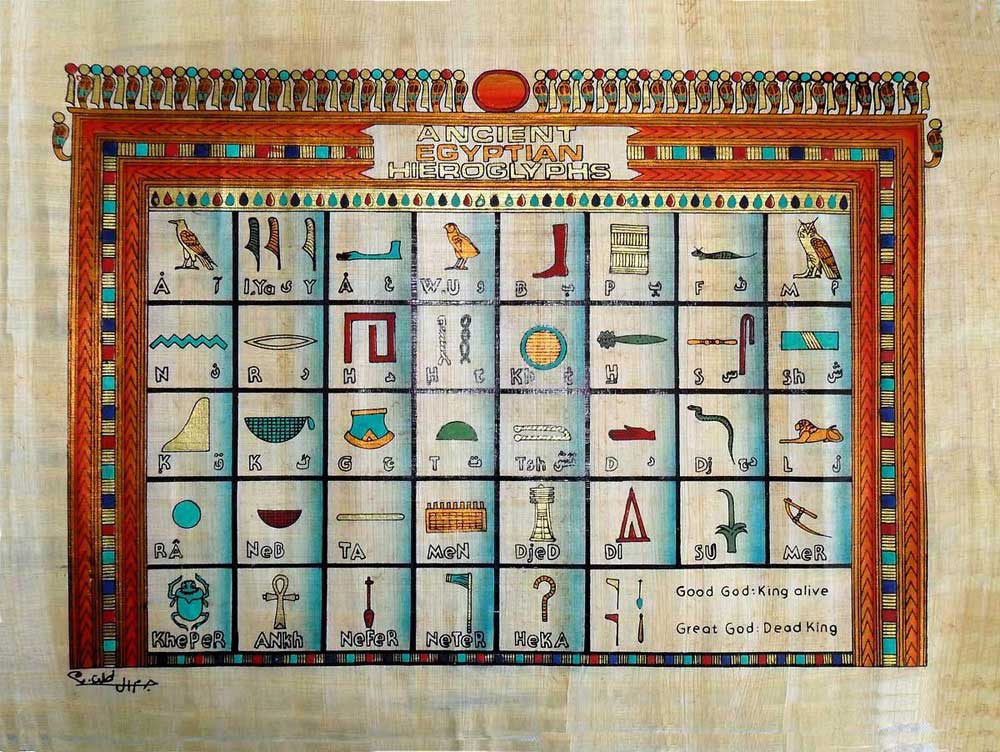 ANCIENT
EGYPTIAN
HIEROGLYPHS
Å أ I,Ya ى Y Å ع W.U و B ب P پ F ف M م
N ن R ر H ه H ح Kh خ H S س Sh ش
K ق K ك G ج T ت Tsh تش D د Dj دج L ل
RÂ NeB TA MeN DjeD DI SU MeR
KhePeR ANkh NeFeR NeTeR HeKA
Good God:King alive
Great God:Dead King